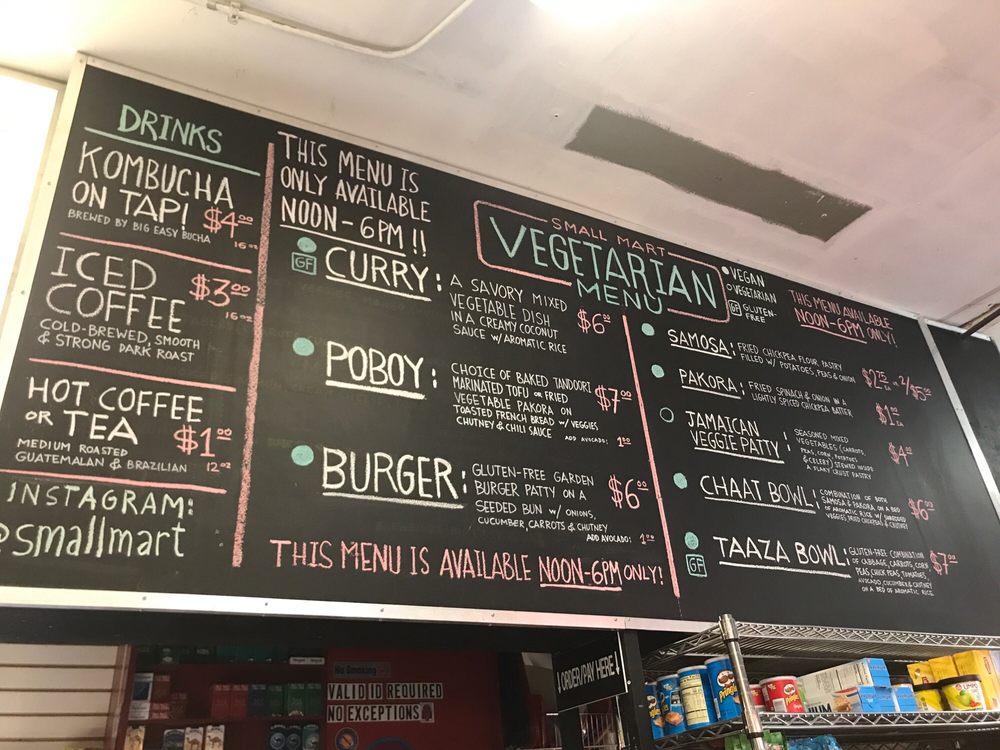 DRINKS
KOMBUCHA
ON TAP! $4.00
BREWED BY BIG EASY BUCHA 16 oz
ICED
COFFEE $3.00
16 oz
COLD-BREWED, SMOOTH
& STRONG DARK ROAST
HOT COFFEE
OR TEA $1.00
MEDIUM ROASTED
GUATEMALAN & BRAZILIAN 12 oz
INSTAGRAM:
@smallmart
THIS MENU IS
ONLY AVAILABLE
NOON-6PM!!
GF CURRY: A SAVORY MIXED
VEGETABLE DISH
IN A CREAMY COCONUT
SAUCE W/ AROMATIC RICE
$6.00
POBOY: CHOICE OF BAKED TANDOORI
MARINATED TOFU OR FRIED
VEGETABLE PAKORA ON
TOASTED FRENCH BREAD W/ VEGGIES
CHUTNEY & CHILI SAUCE
$7.00
ADD AVOCADO: 1.00
BURGER: GLUTEN-FREE GARDEN
BURGER PATTY ON A
SEEDED BUN W/ ONIONS,
CUCUMBER, CARROTS & CHUTNEY
$6.00
ADD AVOCADO: 1.00
THIS MENU IS AVAILABLE NOON-6PM ONLY!
SMALL MART
VEGETARIAN
MENU
VEGAN
VEGETARIAN
GF GLUTEN-
FREE
THIS MENU AVAILABLE
NOON-6PM ONLY!
SAMOSA: FRIED CHICKPEA FLOUR PASTRY
FILLED W/ POTATOES, PEAS & ONION
$2.75 OR 2/$5.00
PAKORA: FRIED SPINACH & ONION IN A
LIGHTLY SPICED CHICKPEA BATTER
$1.00
EA
JAMAICAN
VEGGIE PATTY: SEASONED MIXED
VEGETABLES (CARROTS,
PEAS, CORN, POTATOES
& CELERY) STEWED INSIDE
A FLAKY CRUST PASTRY
$4.00
CHAAT BOWL: COMBINATION OF BOTH
SAMOSA & PAKORA, ON A BED
OF AROMATIC RICE W/ SHREDDED
VEGGIES, FRIED CHICKPEAS & CHUTNEY
$6.00
GF TAAZA BOWL: GLUTEN-FREE COMBINATION
OF CABBAGE, CARROTS, CORN
PEAS, CHICK PEAS, TOMATOES,
AVOCADO, CUCUMBER & CHUTNEY
ON A BED OF AROMATIC RICE
$7.00
No Smoking
VALID ID REQUIRED
NO EXCEPTIONS
ORDER/PAY HERE
Pringles